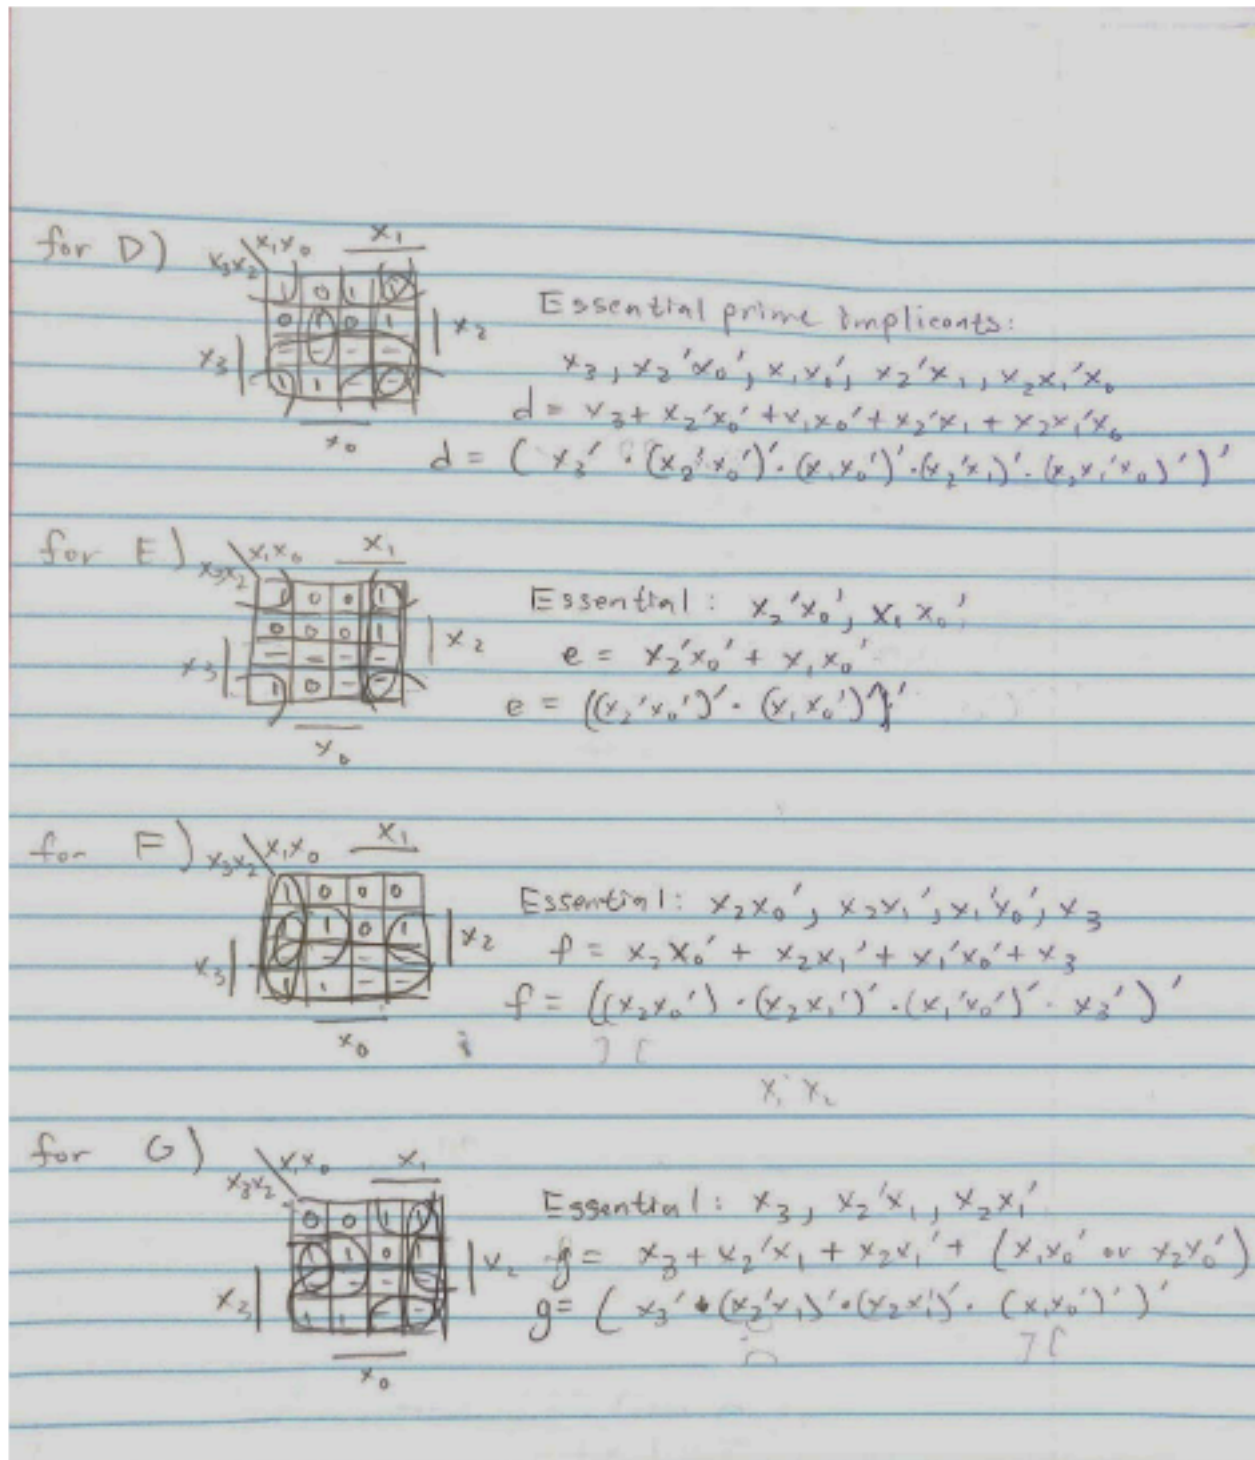 for D) x₃x₂ \ x₁x₀ x₁
1 0 1 1
0 1 0 1 | x₂
x₃ | - - - -
1 1 - -
x₀
Essential prime implicants:
x₃, x₂'x₀', x₁x₀', x₂'x₁, x₂x₁'x₀
d = x₃ + x₂'x₀' + x₁x₀' + x₂'x₁ + x₂x₁'x₀
d = ( x₃' · (x₂'x₀')' · (x₁x₀')' · (x₂'x₁)' · (x₂x₁'x₀)' )'
for E) x₃x₂ \ x₁x₀ x₁
1 0 0 1
0 0 0 1 | x₂
x₃ | - - - -
1 0 - -
x₀
Essential: x₂'x₀', x₁x₀'
e = x₂'x₀' + x₁x₀'
e = ((x₂'x₀')' · (x₁x₀')')'
for F) x₃x₂ \ x₁x₀ x₁
1 0 0 0
1 1 0 1 | x₂
x₃ | - - - -
1 1 - -
x₀
Essential: x₂x₀', x₂x₁', x₁'x₀', x₃
f = x₂x₀' + x₂x₁' + x₁'x₀' + x₃
f = ((x₂x₀') · (x₂x₁')' · (x₁'x₀')' · x₃')'
x₁ x₂
for G) x₃x₂ \ x₁x₀ x₁
0 0 1 1
1 1 0 1 | x₂
x₃ | - - - -
1 1 - -
x₀
Essential: x₃, x₂'x₁, x₂x₁'
g = x₃ + x₂'x₁ + x₂x₁' + (x₁x₀' or x₂x₀')
g = ( x₃' · (x₂'x₁)' · (x₂x₁')' · (x₁x₀')' )'